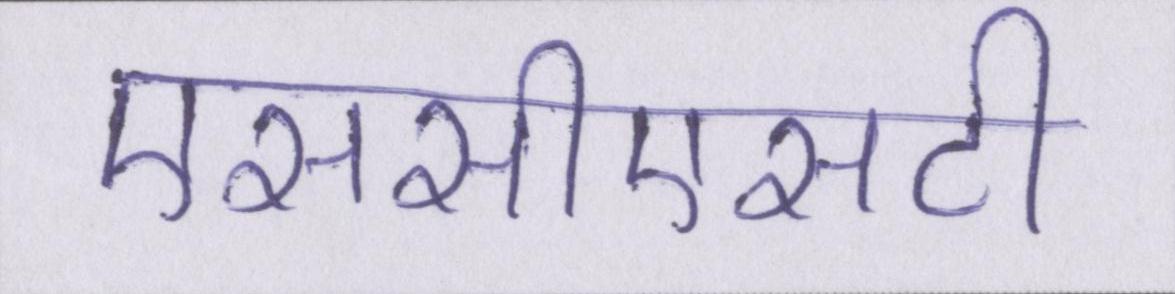 एससीएसटी